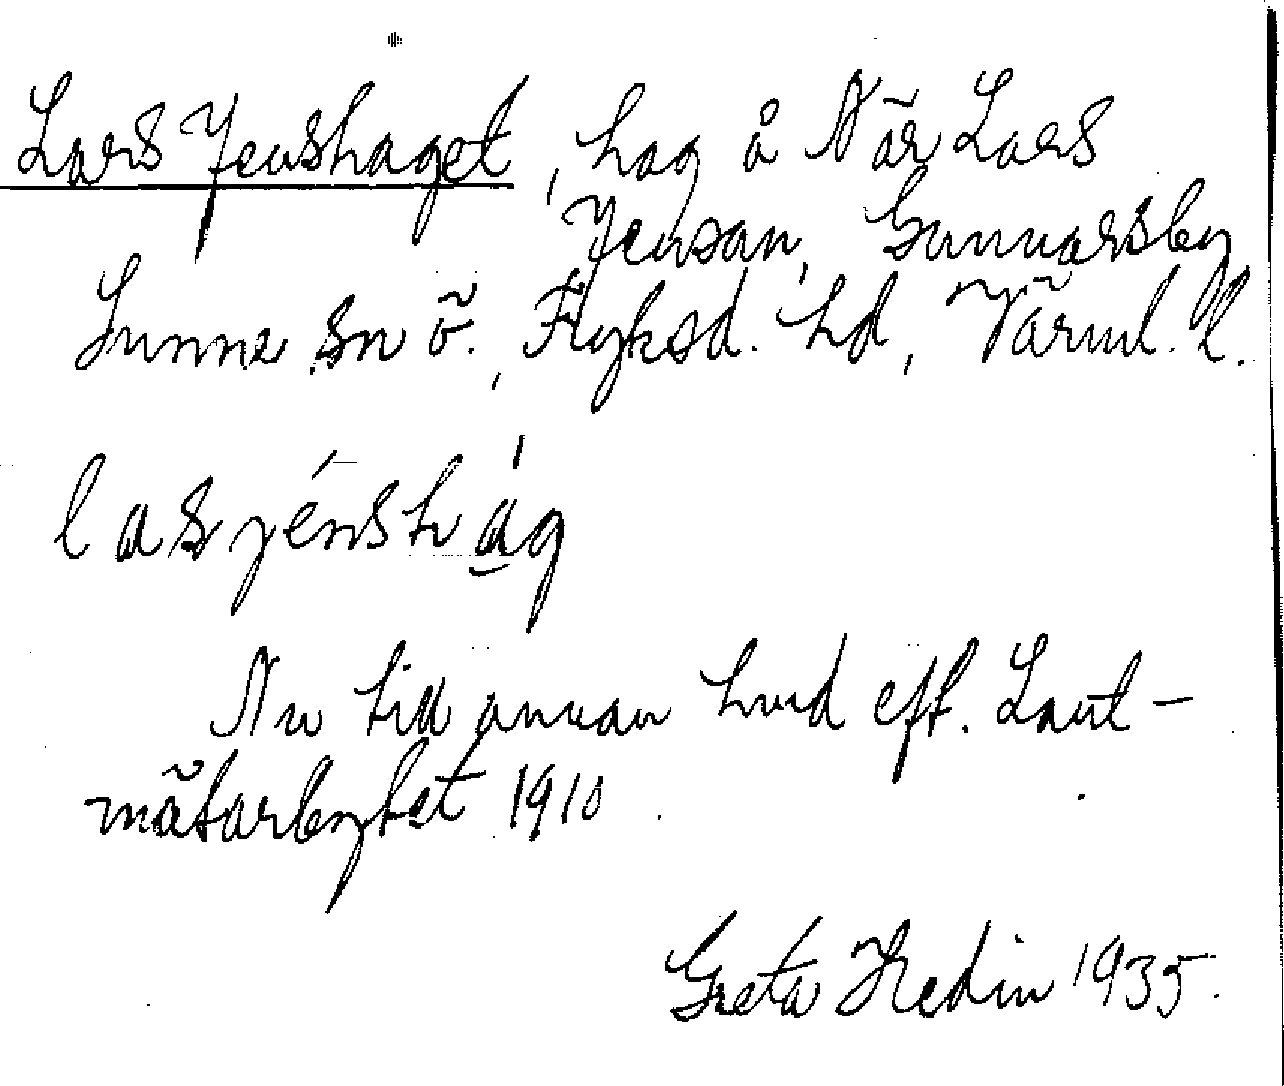 Lars Jenshaget, hag å När Lars
Jensan, Gunnarsby
Sunne sn ö., Fryksd. hd, Värml. l.
las jénshág
Nu till annan hmd eft. Lant-
mätarbytet 1910
Greta Hedin 1935.